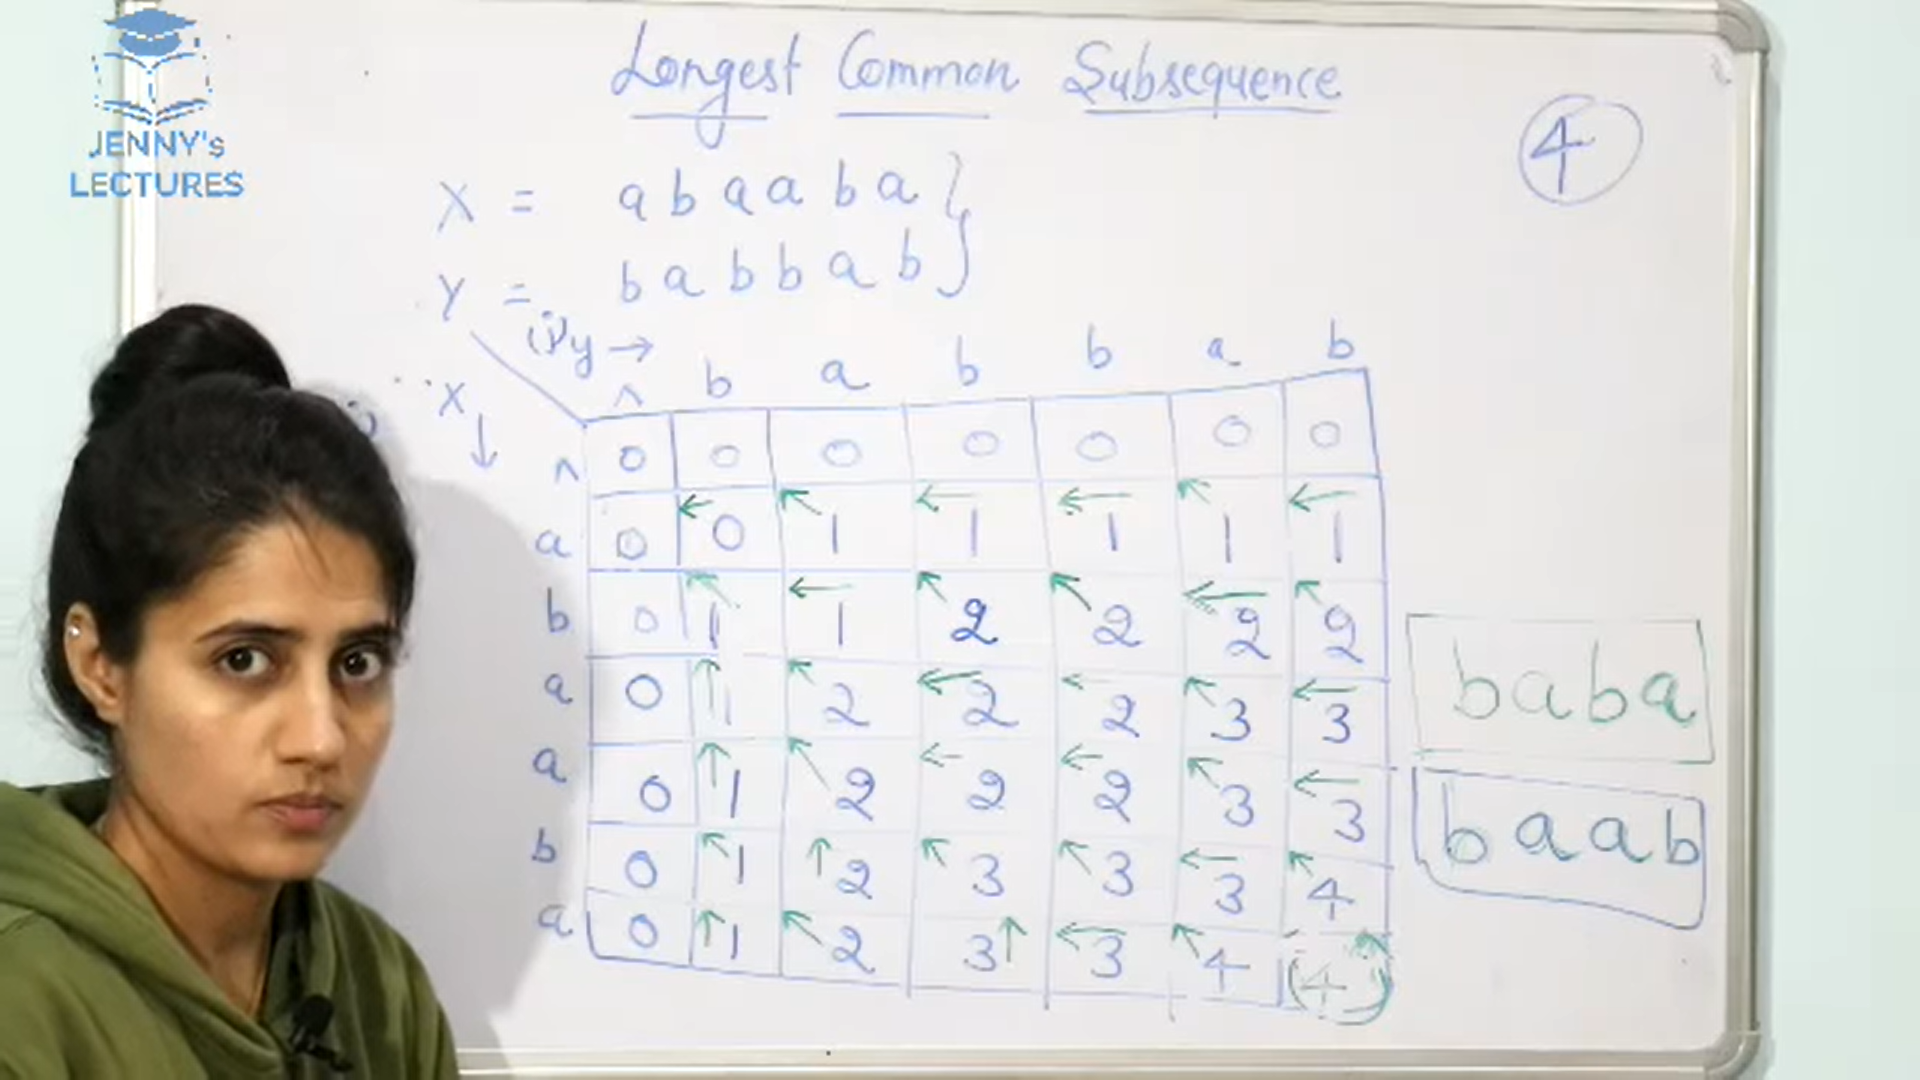 JENNY's
LECTURES
Longest Common Subsequence
4
X = a b a a b a }
Y = b a b b a b }
y →
^ b a b b a b
X ↓
^ 0 0 0 0 0 0 0
a 0 0 1 1 1 1 1
b 0 1 1 2 2 2 2
a 0 1 2 2 2 3 3
a 0 1 2 2 2 3 3
b 0 1 2 3 3 3 4
a 0 1 2 3 3 4 4
baba
baab